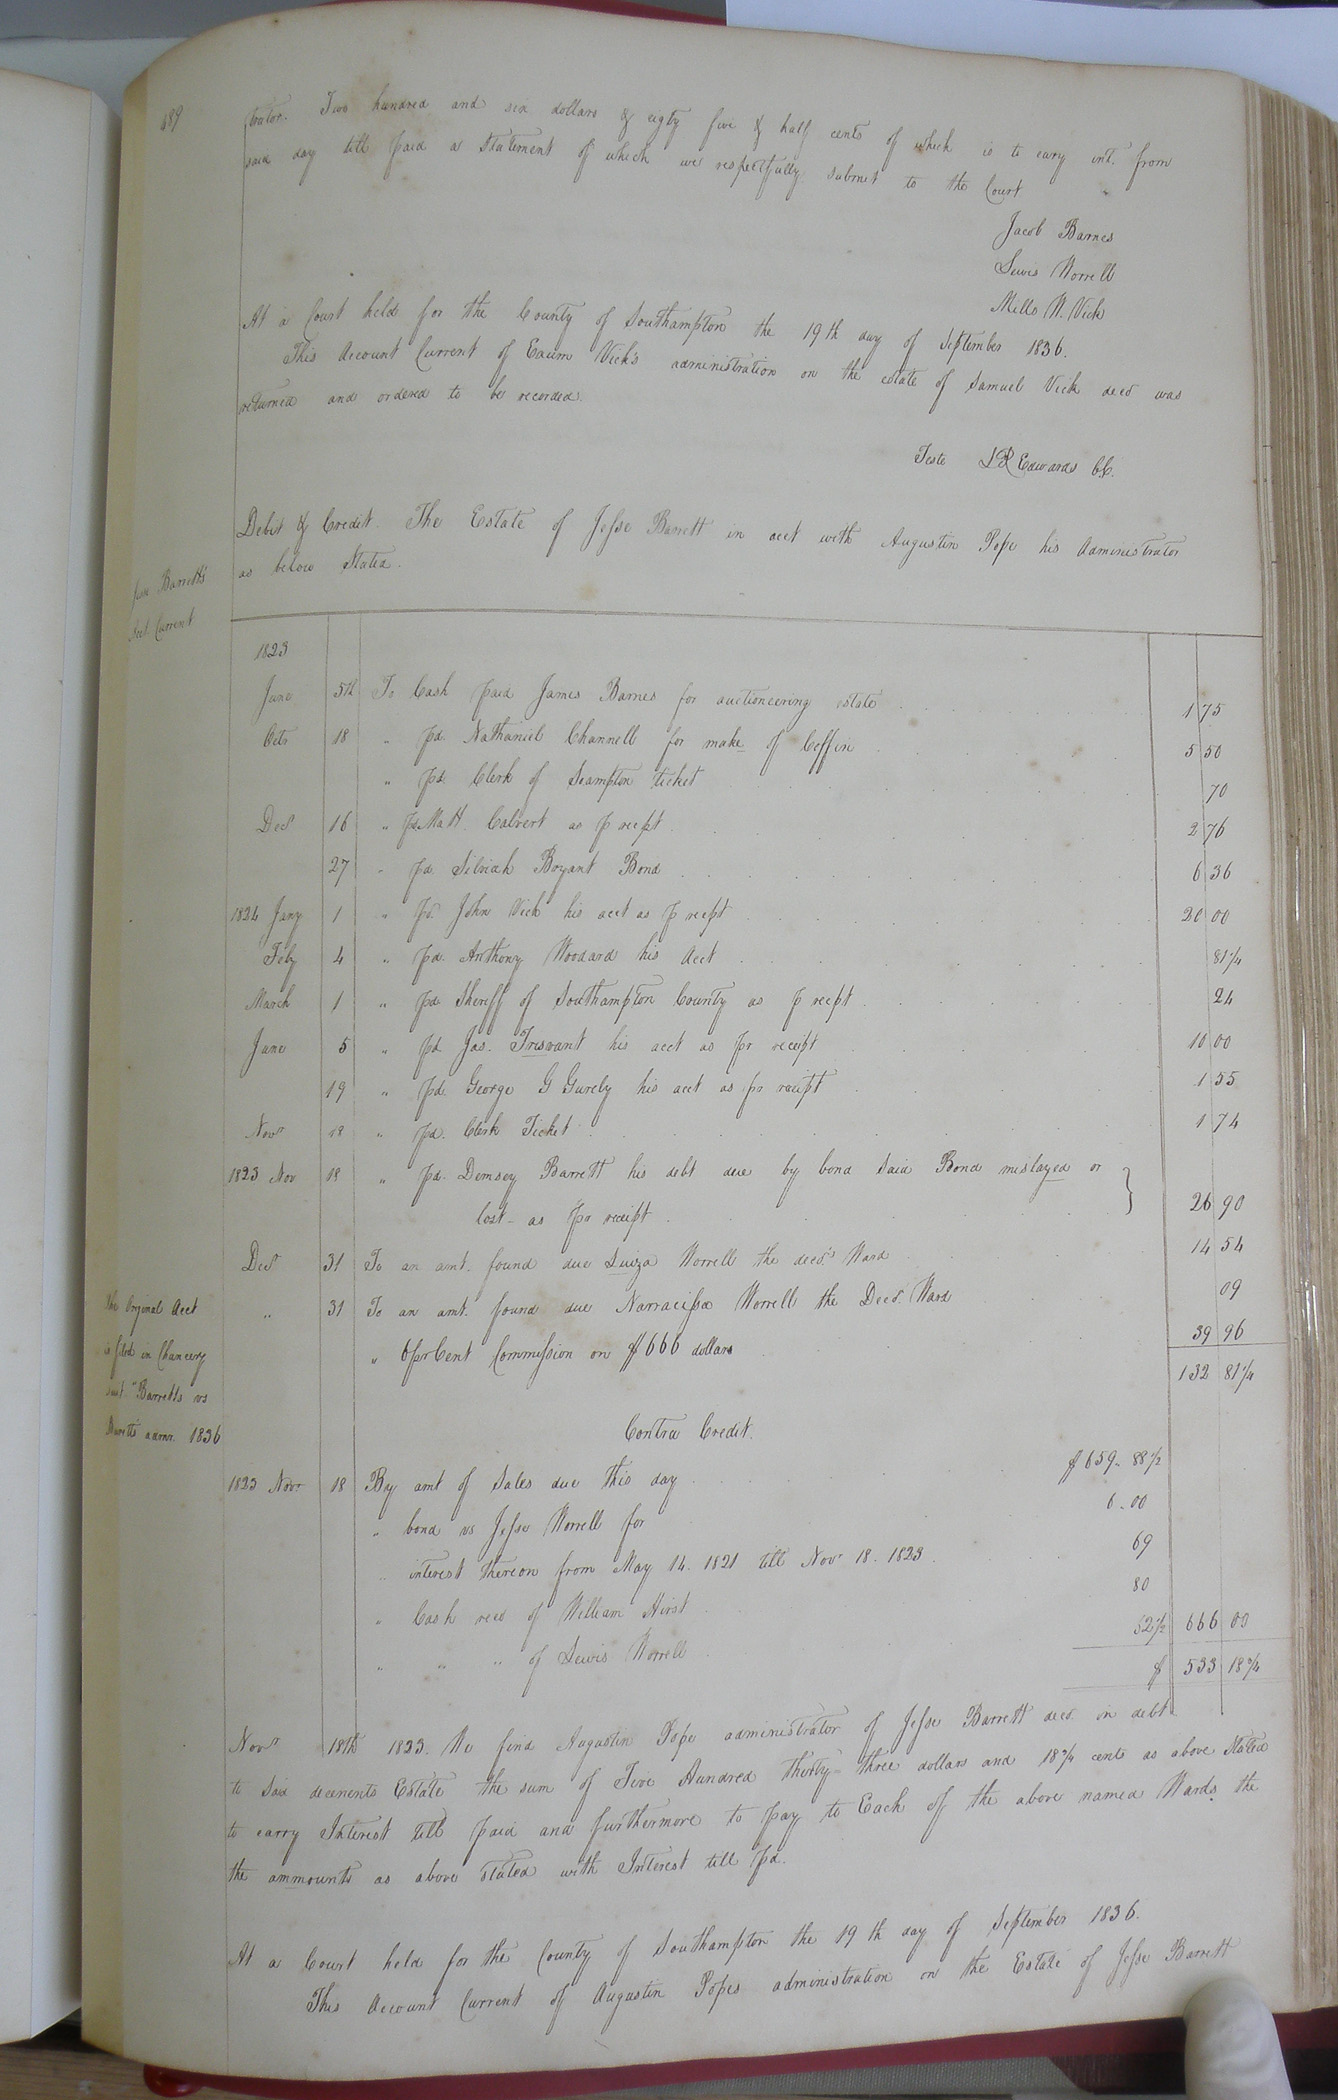 189
trator. Two hundred and six dollars & eigty five & half cents of which is to cary int. from
said day till paid a Statement of which we respectfully submit to the Court
Jacob Barnes
Lewis Worrell
Mills W. Vick
At a Court held for the County of Southampton the 19th day of September 1836.
This Account Current of Exum Vick's administration on the estate of Samuel Vick decd was
returned and ordered to be recorded.
Teste L R Edwards CC.
Debit & Credit. The Estate of Jesse Barrett in acct with Augustin Pope his Administrator
as below Stated.
Jesse Barretts
Acct Current
1823
June 5th To Cash paid James Barnes for auctioneering estate 1 75
Octr 18 " pd. Nathaniel Channell for make of Coffin 5 50
" pd Clerk of Sampton ticket 70
Decr 16 " pd Matt. Calvert as p recpt 2 76
27 " pd Silviah Bryant Bond 6 36
1824 Jany 1 " pd. John Vick his acct as p recpt 20 00
Feby 4 " pd. Anthony Woodard his Acct 81 1/4
March 1 " pd Sheriff of Southampton County as p recpt 24
June 5 " pd Jas. Tresvant his acct as pr receipt 10 00
19 " pd. George G Gurely his acct as pr receipt 1 55
Novr 18 " pd. Clerk Ticket 1 74
1823 Nov 18 " pd. Demsey Barrett his debt due by bond Said Bond mislayed or
lost - as pr receipt 26 90
Decr 31 To an amt. found due Luiza Worrell the decd.s Ward 14 54
" 31 To an amt. found due Narracissa Worrell the Decd. Ward 09
" 6 pr Cent Commission on $666 dollars 39 96
132 81 1/4
The Orginal Acct
is filed in Chancery
suit "Barretts vs
Barretts admr. 1836
Contra Credit.
1823 Novr 18 By amt of Sales due this day $659. 88 1/2
" bond vs Jesse Worrell for 6.00
" interest thereon from May 14. 1821 till Novr 18. 1823 69
" Cash recd of William Hirst 80
" " " of Lewis Worrell 52 1/2 666 00
$ 533 18 3/4
Novr 18th 1823. We find Augustin Pope administrator of Jesse Barrett decd. in debt
to Said decenents Estate the sum of Five Hundred thirty = three dollars and 18 3/4 cents as above Stated
to carry Interest till paid and furthermore to pay to Each of the above named Wards the
the ammounts as above Stated with Interest till pd.
At a Court held for the County of Southampton the 19th day of September 1836.
This Account Current of Augustin Popes administration on the Estate of Jesse Barrett